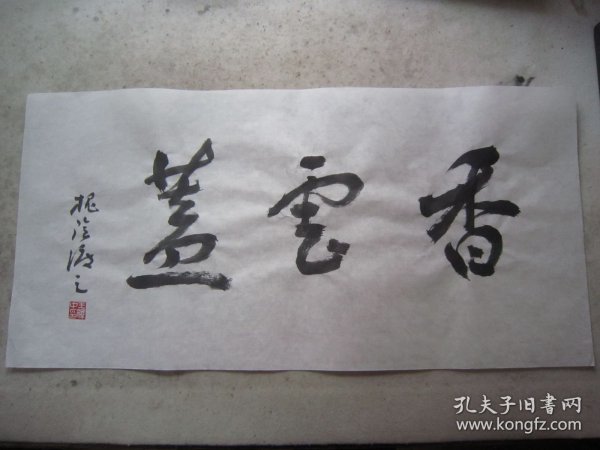 香雲蓋
槐陰
孔夫子旧書网
www.kongfz.com